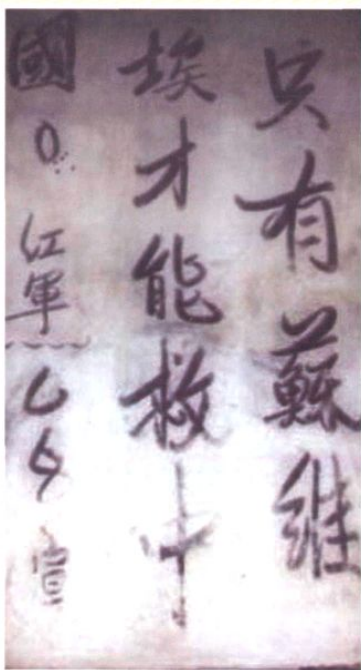 只有蘇維
埃才能救中
國。红軍宣